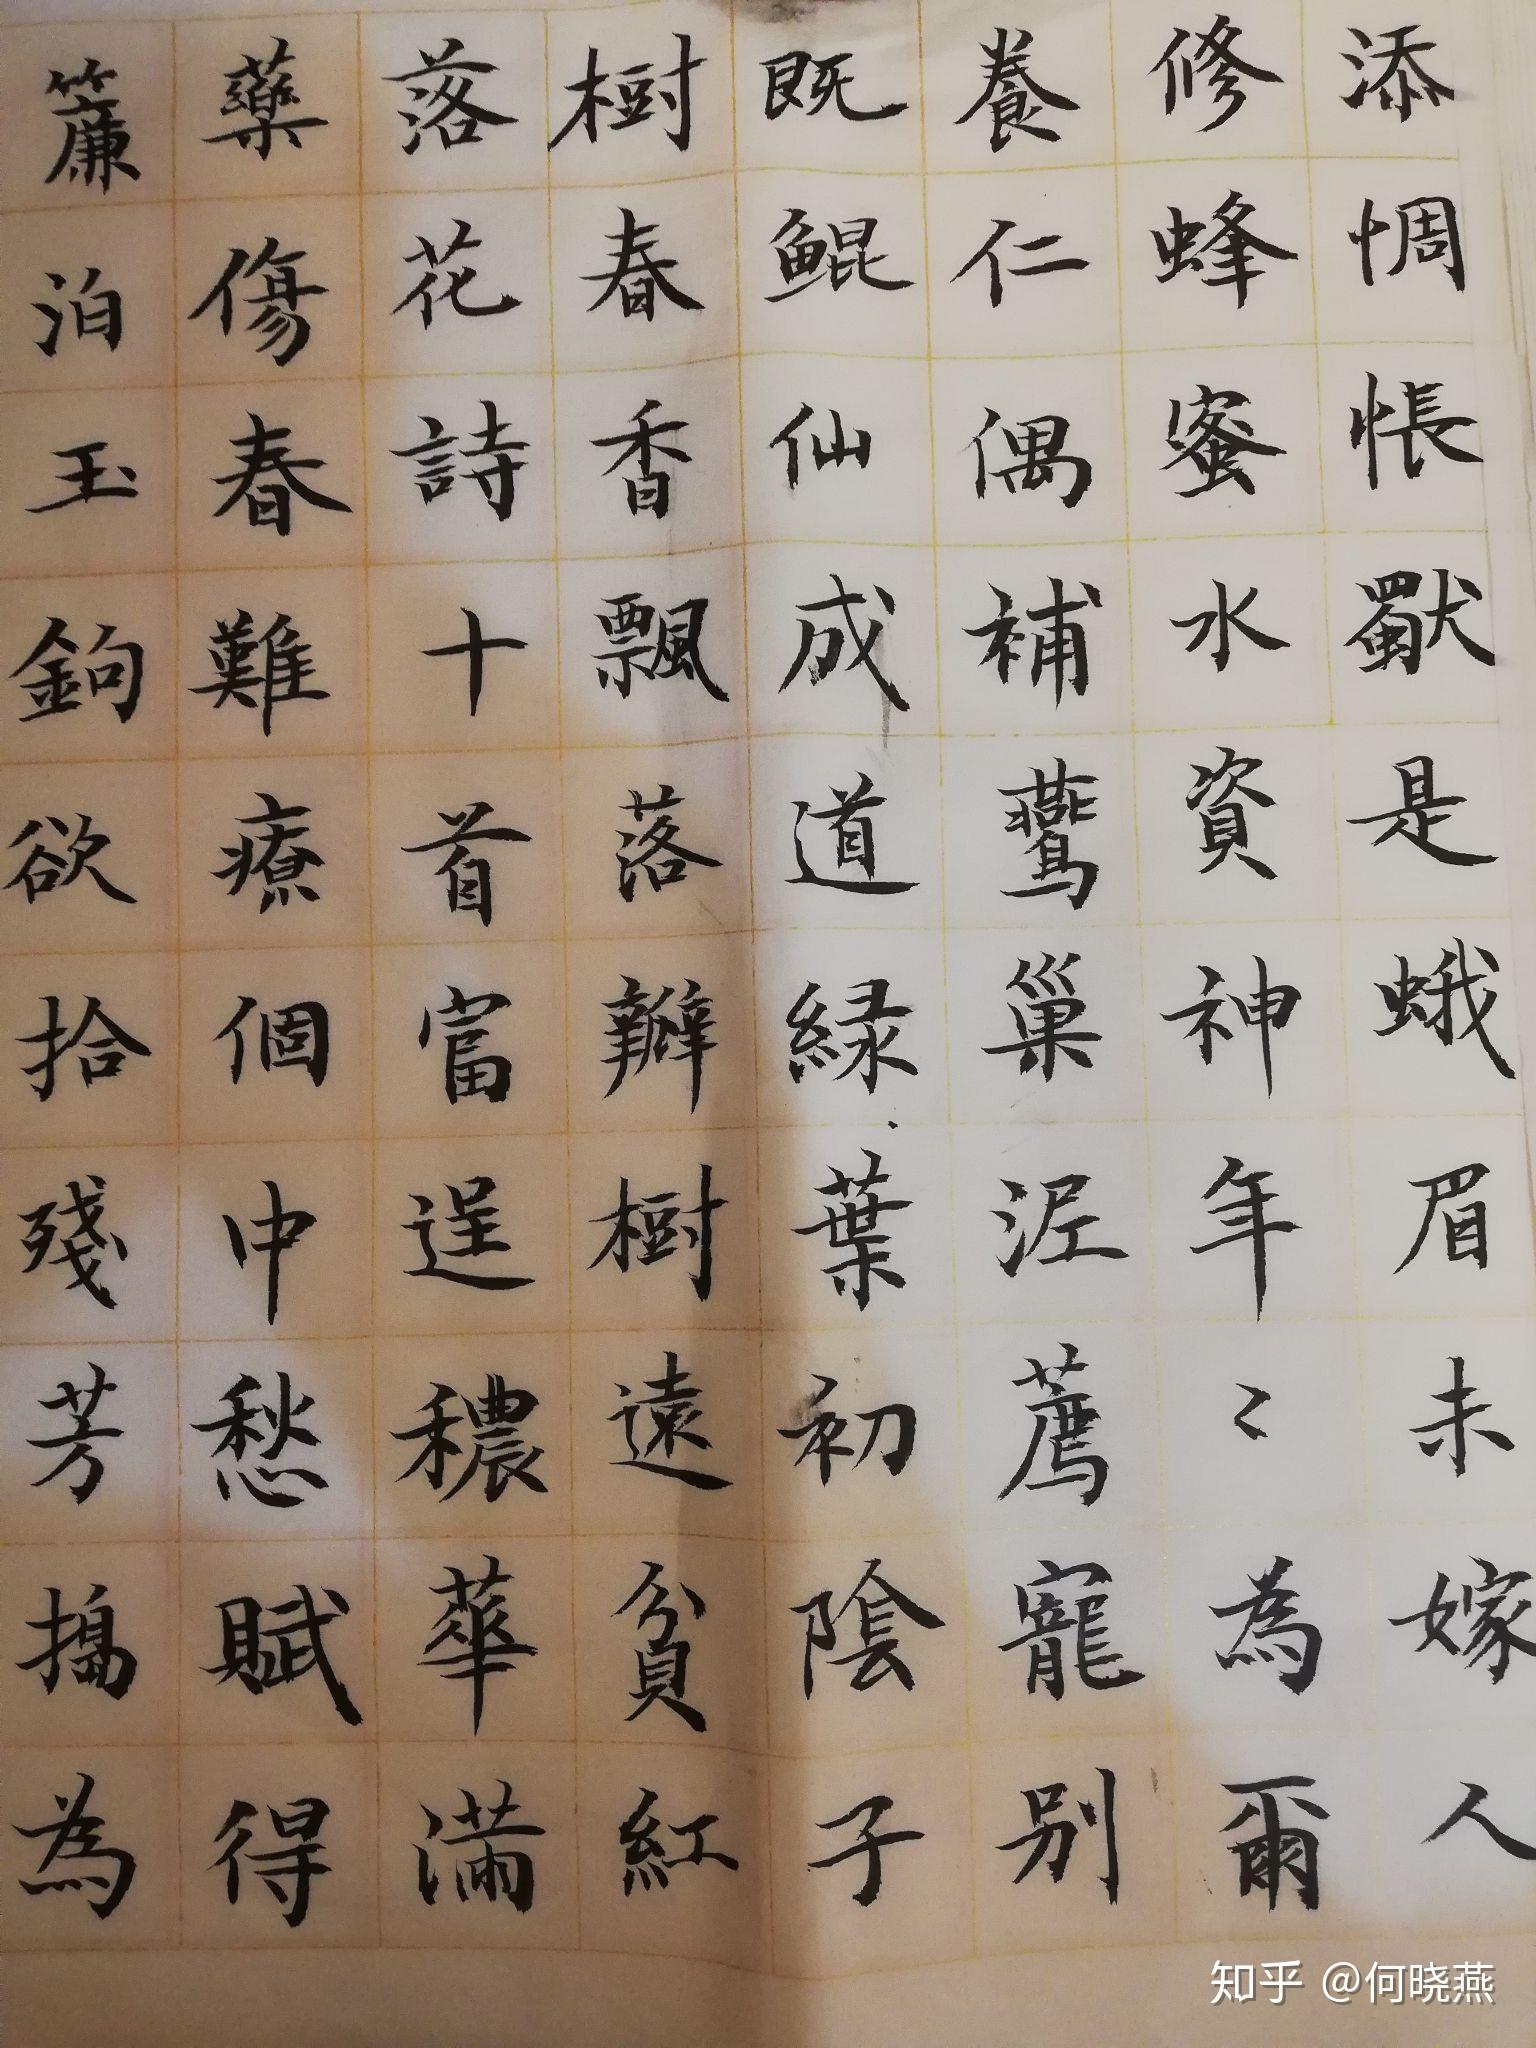 添惆悵獨是蛾眉未嫁人
修蜂蜜水資神年〻為爾
養仁偶補鷰巢泥薦寵別
既鯤仙成道緑葉初陰子
樹春香飄落瓣樹遠貧紅
落花詩十首富逞穠華滿
藥傷春難療個中愁賦得
簾泊玉鉤欲拾殘芳搗為
知乎 @何晓燕